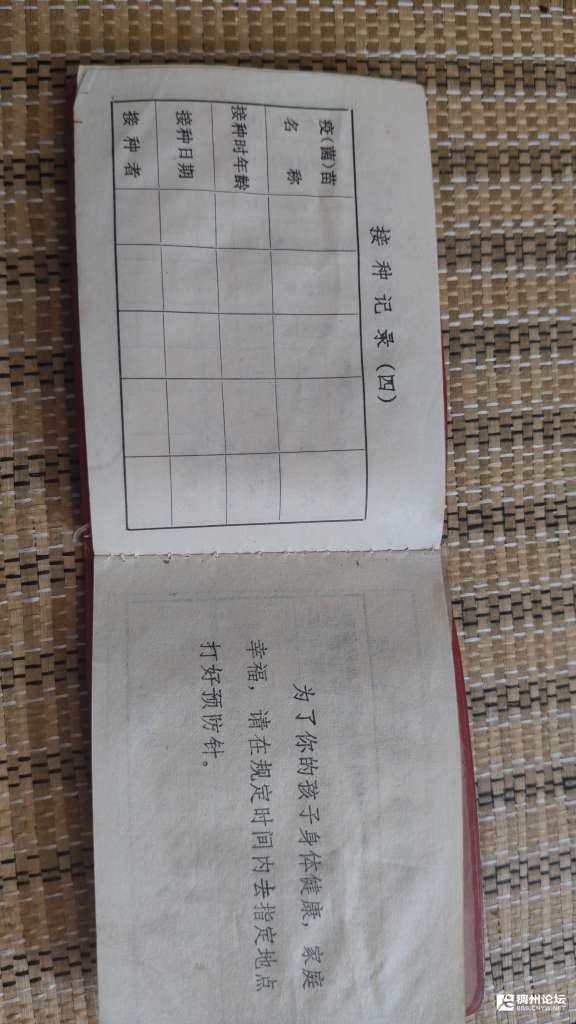 接种记录(四)
疫(菌)苗
名 称
接种时年龄
接种日期
接种者
为了你的孩子身体健康，家庭
幸福，请在规定时间内去指定地点
打好预防针。
稠州论坛
BBS.CNYW.NET